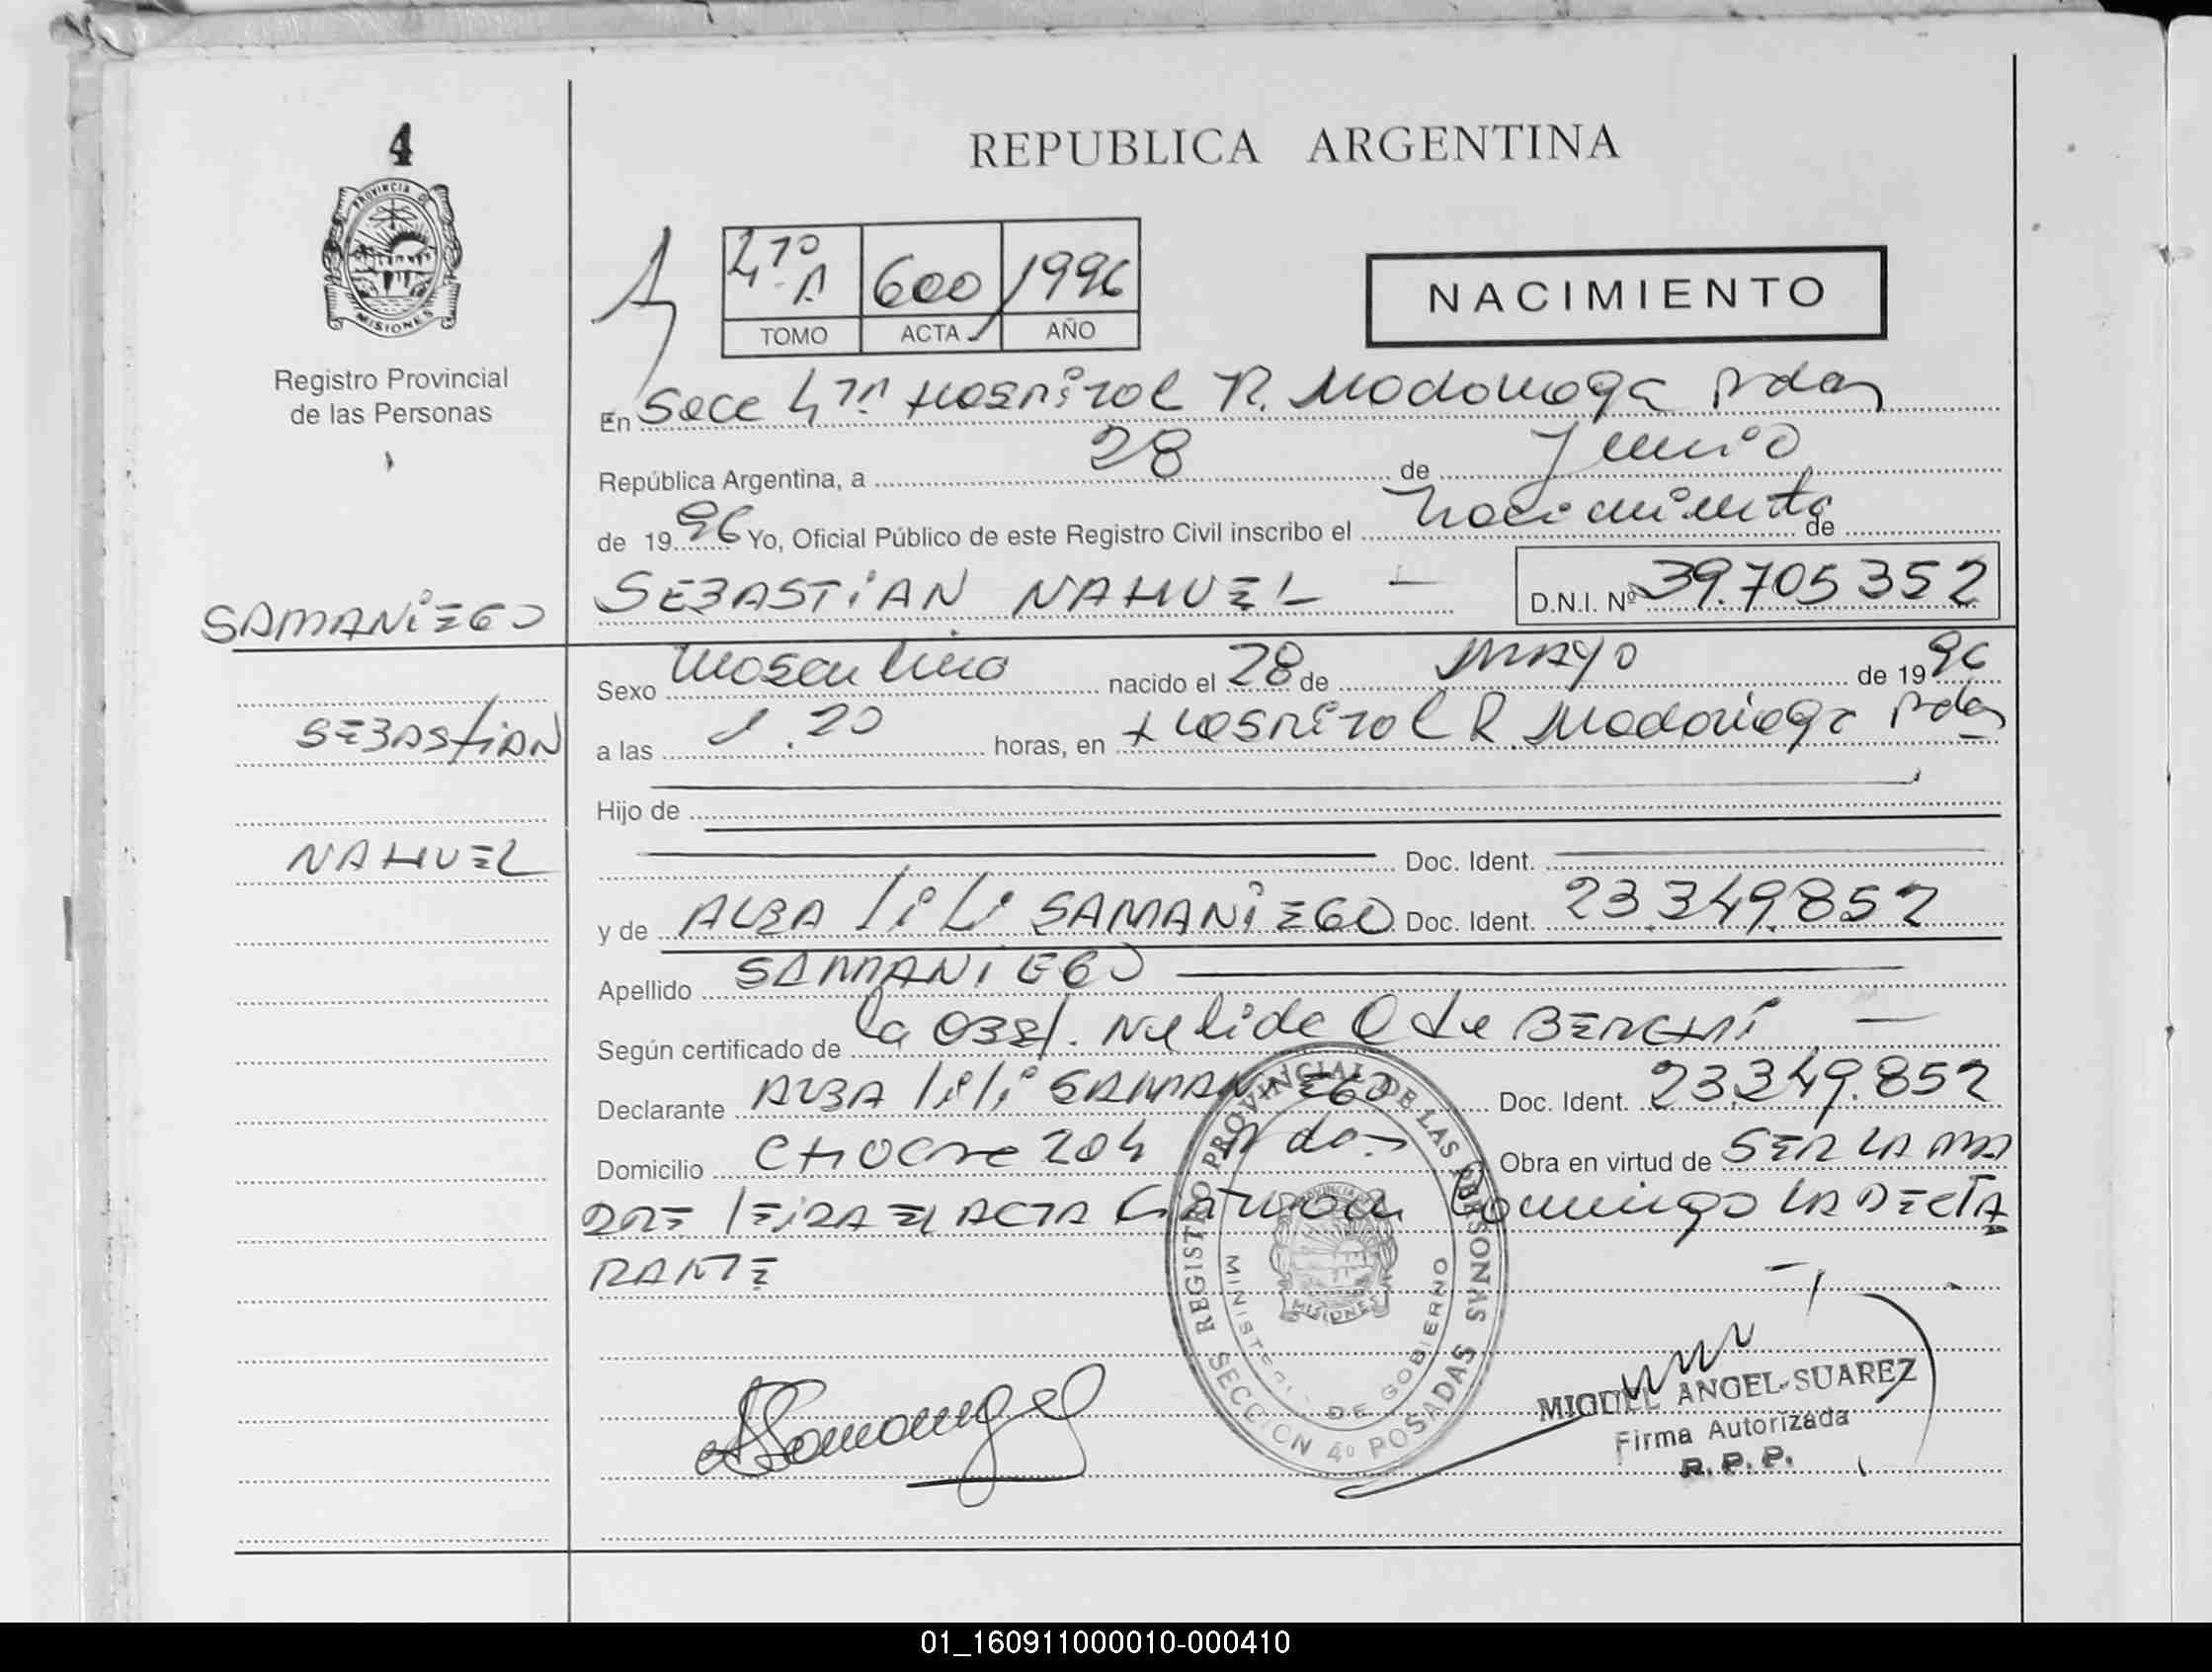 4
REPUBLICA ARGENTINA
PROVINCIA DE
MISIONES
Registro Provincial
de las Personas
4º A 600 1996
TOMO ACTA AÑO
NACIMIENTO
En Secc 4ta Hospital R. Madariaga Pdas
República Argentina, a 28 de Junio
de 1996 Yo, Oficial Público de este Registro Civil inscribo el nacimiento de
SEBASTIAN NAHUEL — D.N.I. Nº 39.705352
SAMANIEGO
SEBASTIAN
NAHUEL
Sexo masculino nacido el 28 de MAYO de 1996
a las 1.20 horas, en Hospital R. Madariaga Pdas
Hijo de
Doc. Ident.
y de ALBA liLi SAMANiEGO Doc. Ident. 23.349.852
Apellido SAMANIEGO
Según certificado de la OBST. Nelida O de —
Declarante ALBA lili SAMANIEGO Doc. Ident. 23.349.852
Domicilio 204 Pdas Obra en virtud de SER LA MA
DRE LEIDA EL ACTA LA DECLA
RANTE
REGISTRO PROVINCIAL DE LAS PERSONAS
MINISTERIO DE GOBIERNO
MISIONES
SECCION 4º POSADAS
MIGUEL ANGEL SUAREZ
Firma Autorizada
R. P. P.
01_160911000010-000410